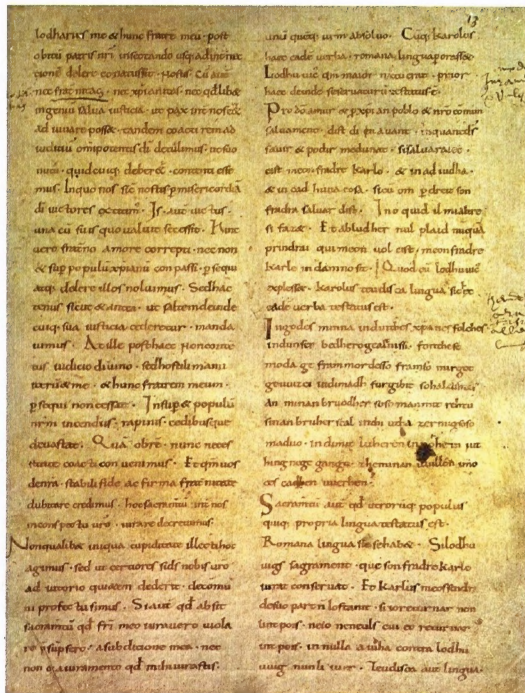 lodharius me & hunc fratre meu · post
obitu patris nri insectando
dolere conatus sit · nostis ·
nec fraternitas · nec xpianitas · nec qdlib&
ingeniu salva iusticia · ut pax int nos e&
adiuvare posset · tandem coacti rem ad
iudiciu omnipotentis di detulimus ·
nutu · quid cuiq; deber& · contenti esse
mus · In quo nos sic nostis p misericordia
di victores · Is aut victus ·
una cu suis quo valuit secessit · Hinc
vero fraterno amore correpti · nec non
& sup populu xpianu con passi · psequi
atq; delere illos noluimus · Sed hac
tenus sicut & antea · ut saltem deinde
cuiq; sua iusticia cederetur · manda
vimus · At ille post haec non content
iudicio divino · sed hostili manu
iteru & me · & hunc fratrem meum ·
psequi non cessat · Insup & populu
nrm incendiis · rapinis · cedibusque
devastat · Qua obre · nunc neces
sitate coacti con venimus · Et qm vos
de nra · stabili fide ac firma frnitate
dubitare credimus · hoc sacramtu int nos
in conspectu vro · iurare decrevimus ·
Non qualiba iniqua cupiditate illecti hoc
agimus · sed ut certiores si ds nobis vro
ad iutorio quiaetem dederit · de comu
ni profectu simus · Si aut qd absit
sacramtu qd fri meo iuravero viola
re psupsero · a subdicione mea · nec
non & a iuramento qd mihi iurastis ·
13
unu queq; vrm absolvo · Cuq; karolus
haec eade verba · romana lingua
Lodhuvic qm maior natu erat · prior
haec deinde se servaturu testatus e ·
Pro do amur & p xpian poblo & nro comun
salvament · dist di en avant · inquantds
savir & podir medunat · si salvarai eo
cist meon fradre karlo · & in adiudha ·
& in cad huna cosa · sicu om p dreit son
fradra salvar dist · Ino quid il mi altre
si faz& · Et abludher nul plaid nuqua
prindrai qui meon vol cist · meon fradre
karle in damno sit · Quod cu lodhuvic
explesset · karolus teudisca lingua sic hec
eade verba testatus est ·
In godes minna indinthes xpanes folches
indunser bedhero gealtnissi · fonthese
moda ge frammordesso framso mirgot
gewizci indimadh furgibit sohaldihtes
an minan bruodher soso man mit rehtu
sinan bruher scal inthi utha zermigsoso
maduo · indimit luheren in non hein iut
hing nege gango · zheminan willon imo
ces cadhen werhen ·
Sacramtu aut qd utrorq; populus
quiq; propria lingua testatus est ·
Romana lingua sic se hab& · Silodhu
uigs sagrament · que son fradre karlo
iurat conservat · Et karlus meos sendra
desuo part n lostanit · si io returnar non
lint pois · neio neneuls cui eo returnar
int pois · in nulla aiudha contra lodhu
uuig nunli iuer · Teudisca aut lingua ·